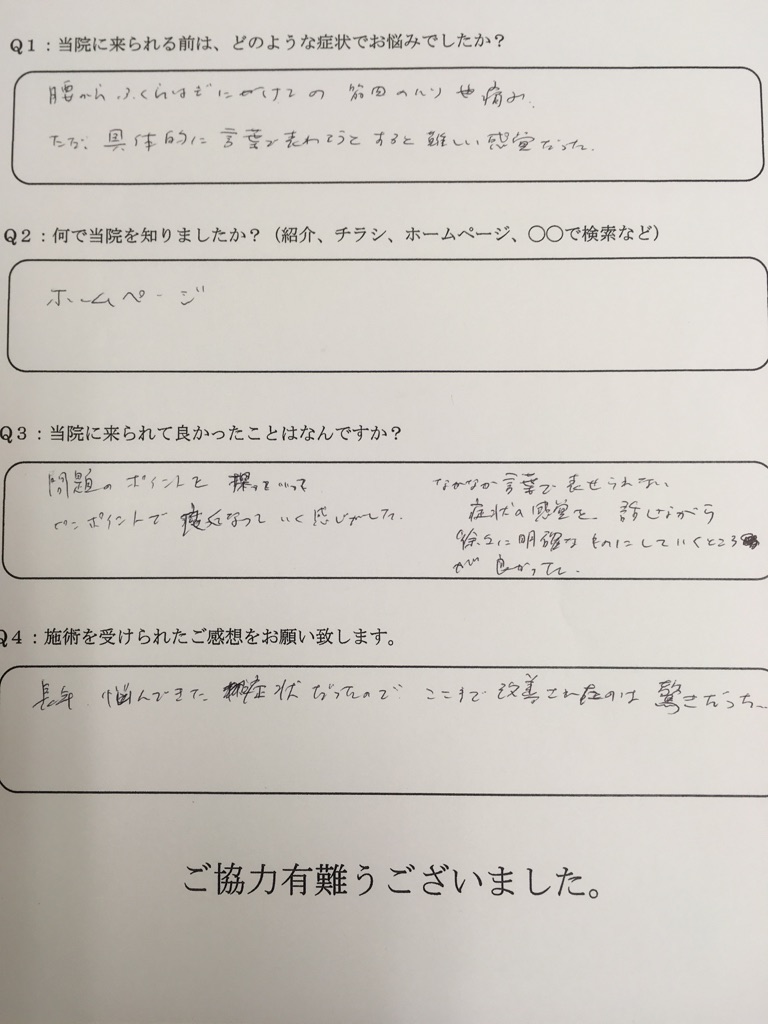 Q1：当院に来られる前は、どのような症状でお悩みでしたか？
腰からふくらはぎにかけての 筋肉のハリや痛み。
ただ、具体的に言葉で表わそうとすると難しい感覚だった。
Q2：何で当院を知りましたか？（紹介、チラシ、ホームページ、〇〇で検索など）
ホームページ
Q3：当院に来られて良かったことはなんですか？
問題のポイントを 探っていって
ピンポイントで なっていく感じがした。
なかなか言葉で表せられない
症状の感覚を、話しながら
徐々に明確なものにしていくところ
が良かった。
Q4：施術を受けられたご感想をお願い致します。
長年、悩んできた 症状だったので ここまで改善されたのは 驚きだった。
ご協力有難うございました。